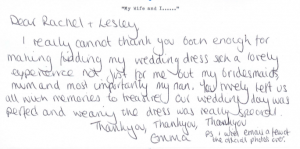 "My Wife and I......"
Dear Rachel + Lesley
I really cannot thank you both enough for
making finding my wedding dress such a lovely
experience not just for me but my bridesmaids,
mum and most importantly my nan. You lovely left us
all with memories to treasure. Our wedding day was
perfect and wearing the dress was really special.
Thankyou, Thankyou, Thankyou
Emma
P.S. I will email a few of
the official photos over.